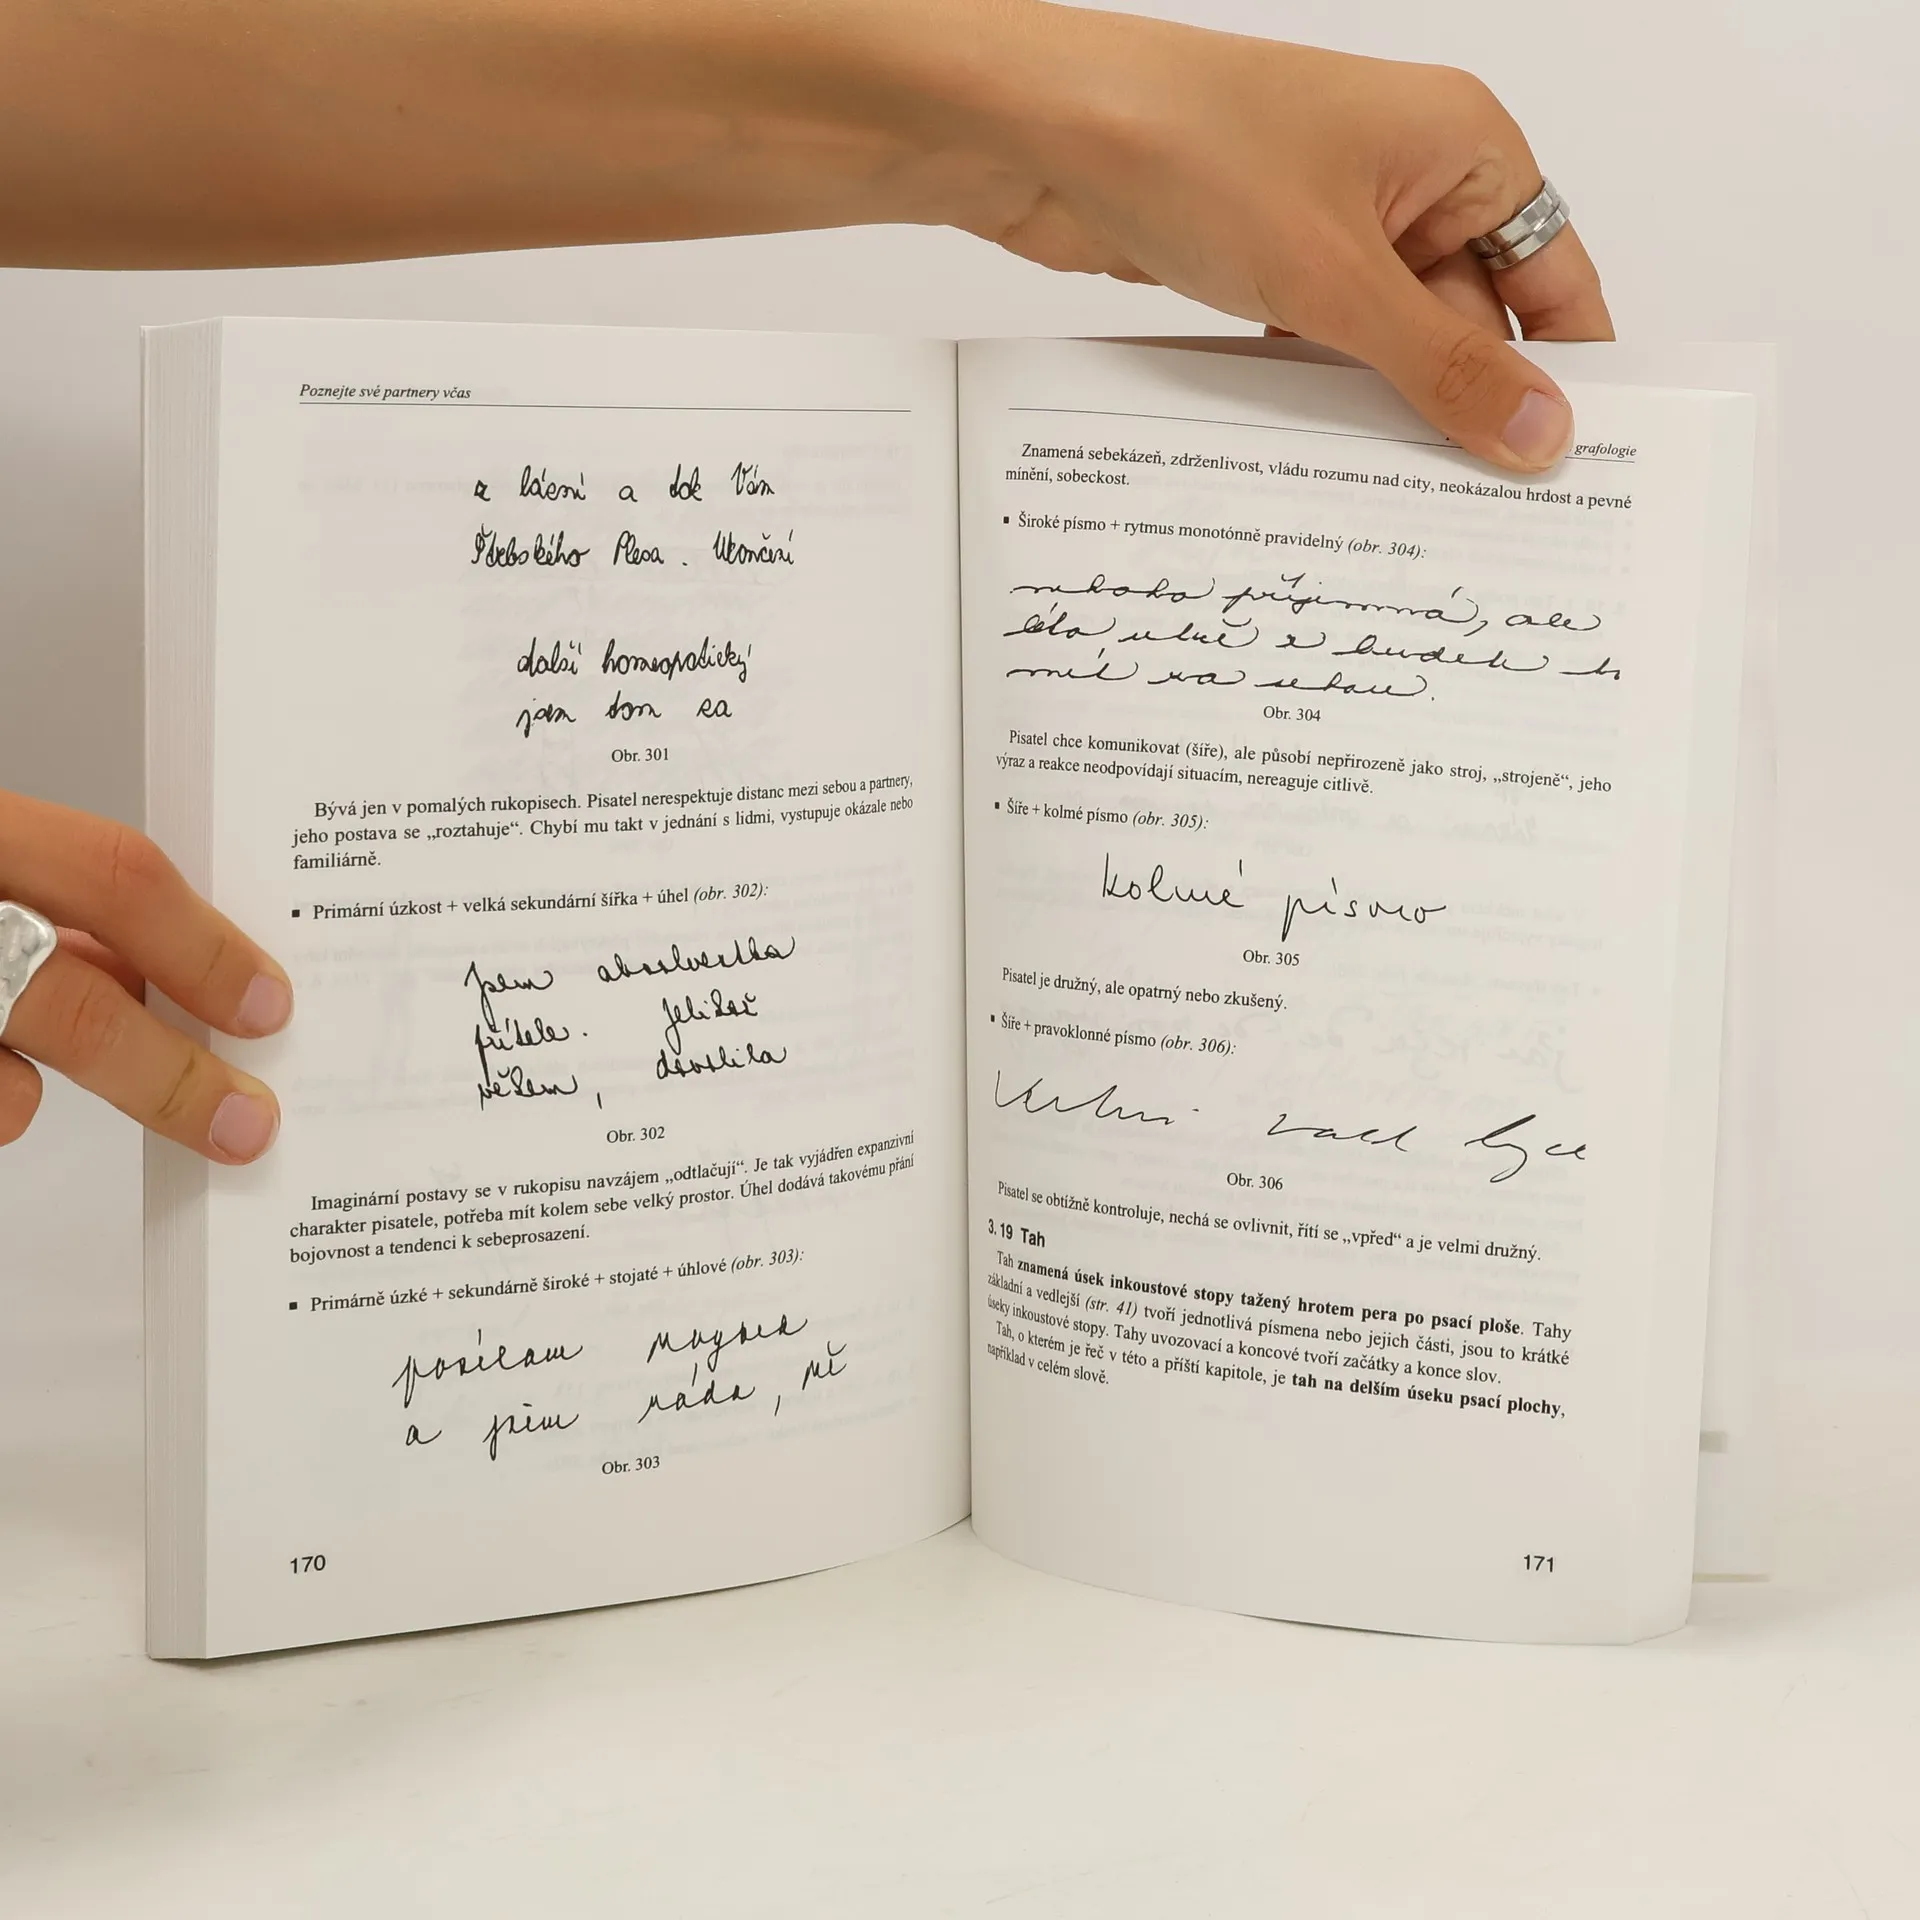 Poznejte své partnery včas
a tak Vám
Štrbského Plesa. Ukončení
další homeopatický
jsem tom za
Obr. 301
Bývá jen v pomalých rukopisech. Pisatel nerespektuje distanc mezi sebou a partnery,
jeho postava se „roztahuje“. Chybí mu takt v jednání s lidmi, vystupuje okázale nebo
familiárně.
▪ Primární úzkost + velká sekundární šířka + úhel (obr. 302):
jsem absolventka
přítele. Jelikož
věkem, dovolila
Obr. 302
Imaginární postavy se v rukopisu navzájem „odtlačují“. Je tak vyjádřen expanzivní
charakter pisatele, potřeba mít kolem sebe velký prostor. Úhel dodává takovému přání
bojovnost a tendenci k sebeprosazení.
▪ Primárně úzké + sekundárně široké + stojaté + úhlové (obr. 303):
posílam
a jsem ráda, mě
Obr. 303
170
grafologie
Znamená sebekázeň, zdrženlivost, vládu rozumu nad city, neokázalou hrdost a pevné
mínění, sobeckost.
▪ Široké písmo + rytmus monotónně pravidelný (obr. 304):
příjemná, ale
z budek
mít za sebou.
Obr. 304
Pisatel chce komunikovat (šíře), ale působí nepřirozeně jako stroj, „strojeně“, jeho
výraz a reakce neodpovídají situacím, nereaguje citlivě.
▪ Šíře + kolmé písmo (obr. 305):
kolmé písmo
Obr. 305
Pisatel je družný, ale opatrný nebo zkušený.
▪ Šíře + pravoklonné písmo (obr. 306):
Obr. 306
Pisatel se obtížně kontroluje, nechá se ovlivnit, řítí se „vpřed“ a je velmi družný.
3.19 Tah
Tah znamená úsek inkoustové stopy tažený hrotem pera po psací ploše. Tahy
základní a vedlejší (str. 41) tvoří jednotlivá písmena nebo jejich části, jsou to krátké
úseky inkoustové stopy. Tahy uvozovací a koncové tvoří začátky a konce slov.
Tah, o kterém je řeč v této a příští kapitole, je tah na delším úseku psací plochy,
například v celém slově.
171